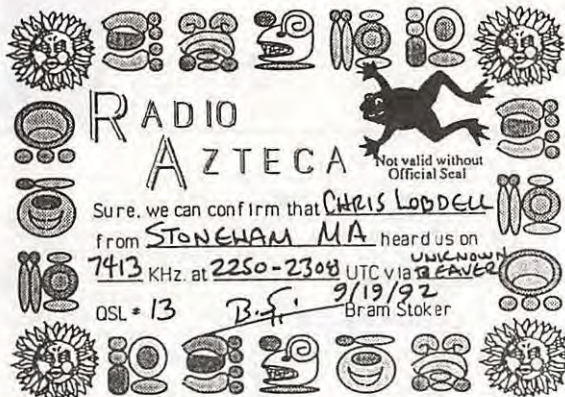 RADIO
AZTECA
Not valid without
Official Seal
Sure, we can confirm that CHRIS LOBDELL
from STONEHAM MA heard us on
7413 KHz. at 2250-2308 UTC via UNKNOWN BEAVER
9/19/92
QSL # 13 B.S. Bram Stoker